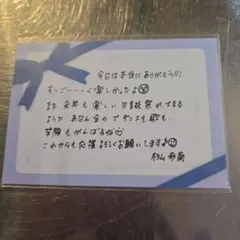 今日は本当にありがとう!!!
すっごーーーく楽しかったよ
また 来年も 楽しい 生誕祭ができる
ように あなん自の でダンスも歌も
笑顔もがんばるね
これからも応援 よろしくお願いします♪
杉山